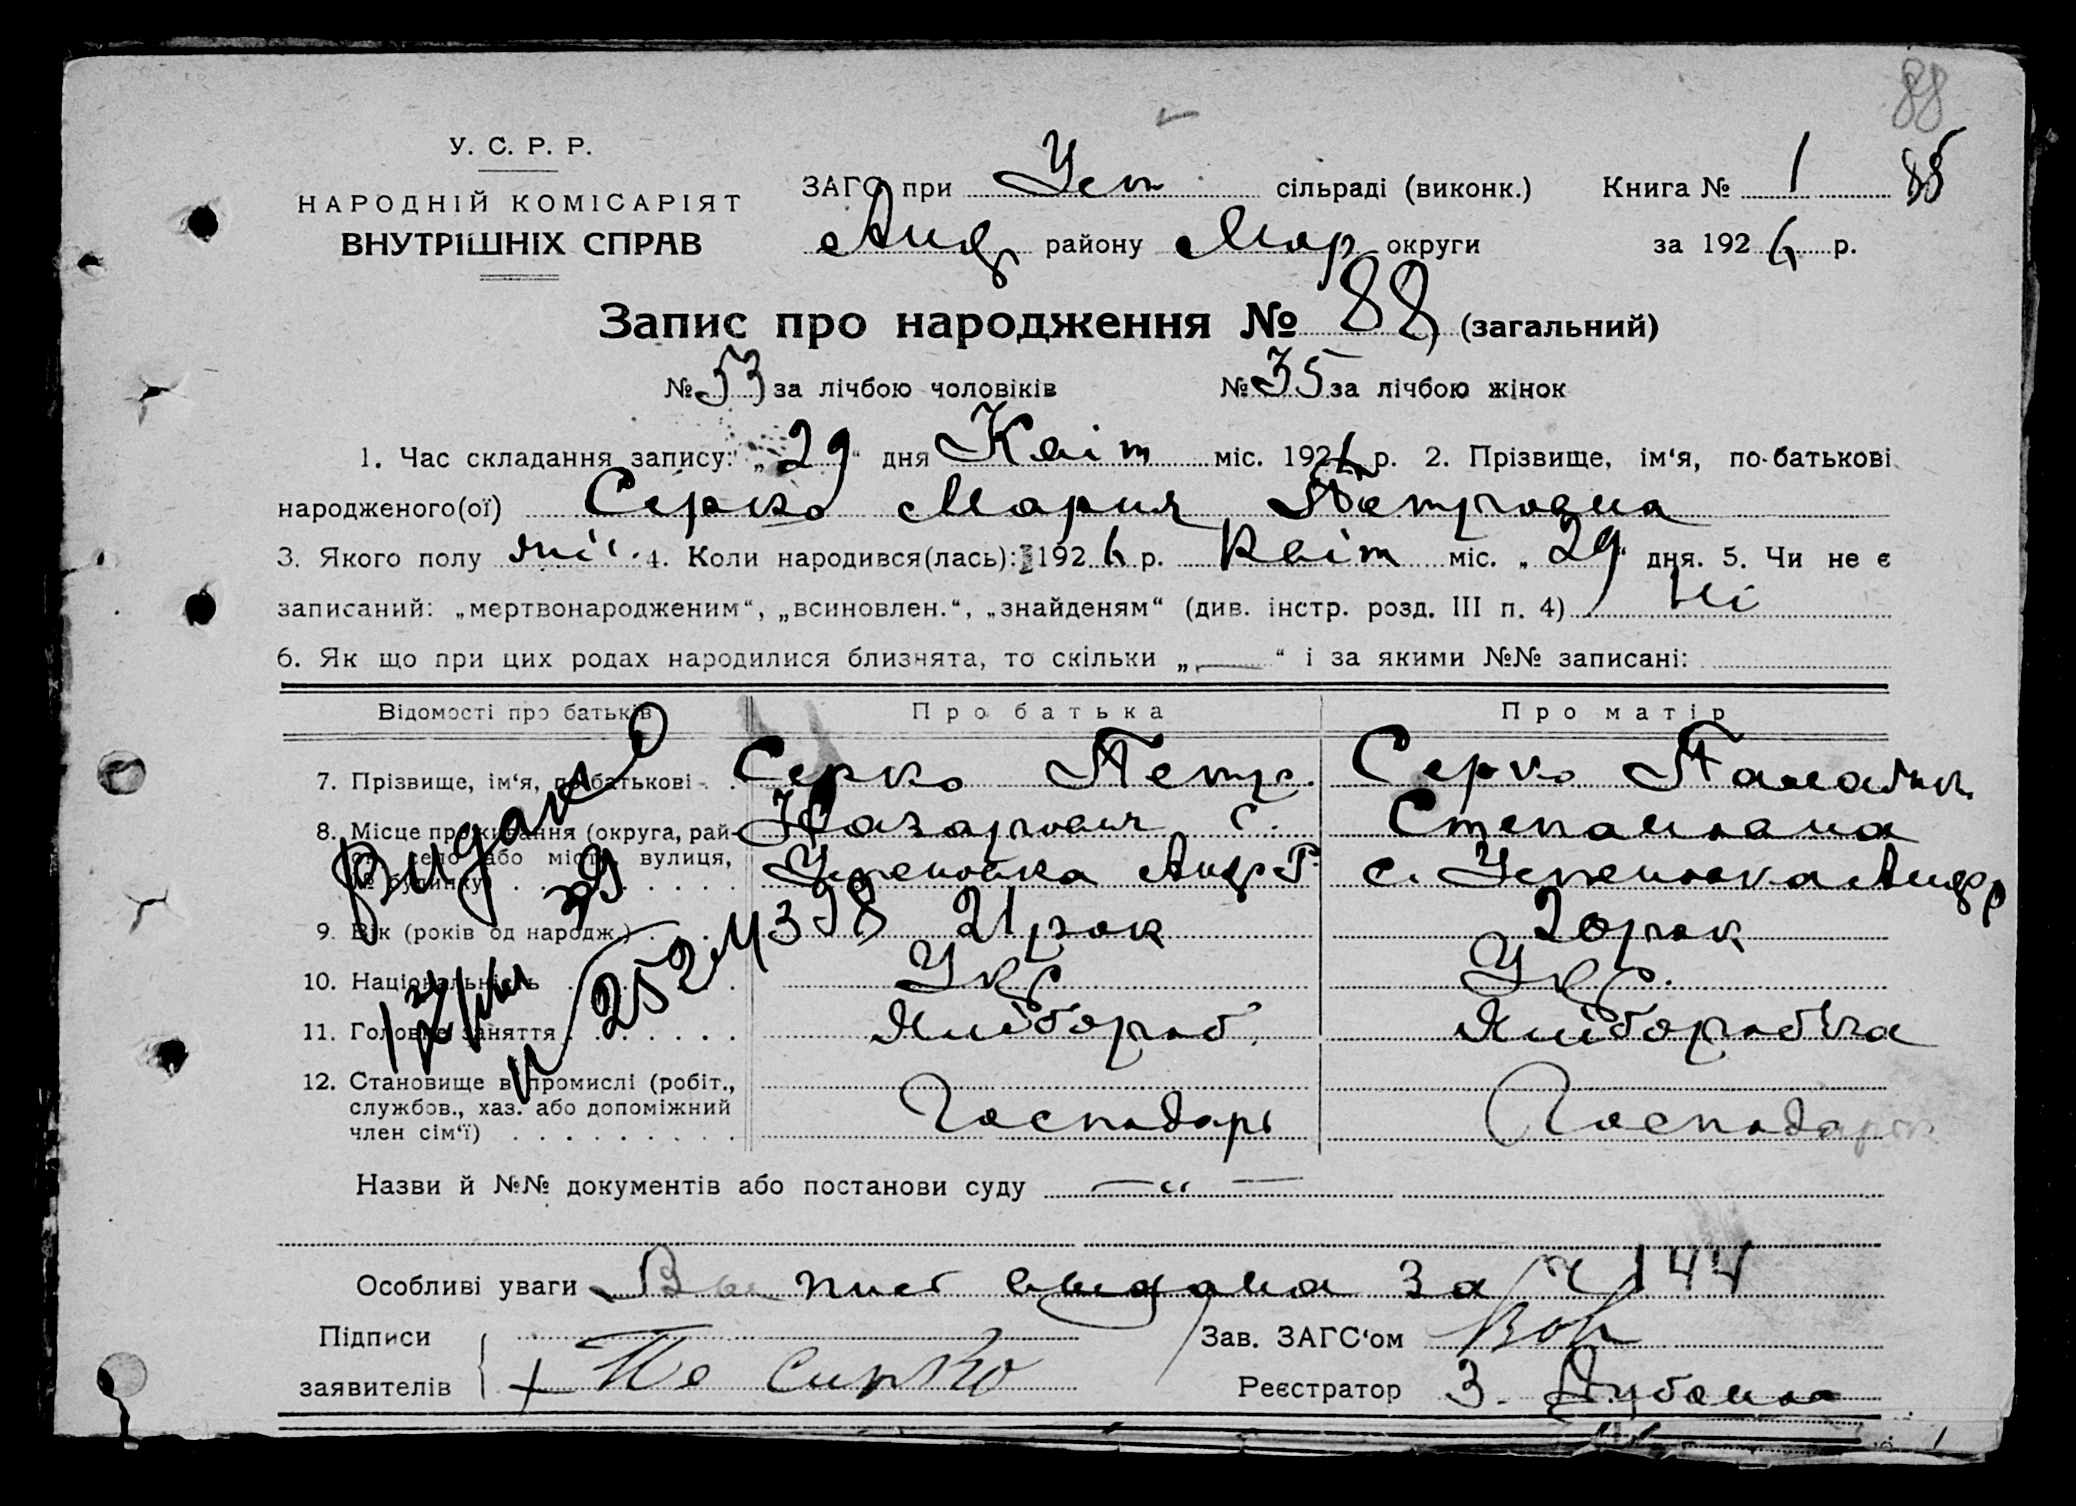 88
У. С. Р. Р.
НАРОДНІЙ КОМІСАРІЯТ
ВНУТРІШНІХ СПРАВ
ЗАГС при Усп сільраді (виконк.) Книга № 1 88
Анд району Мар округи за 192 6 р.
Запис про народження № 88 (загальний)
№ 53 за лічбою чоловіків № 35 за лічбою жінок
1. Час складання запису: „ 29 “ дня Квіт міс. 192 6 р. 2. Прізвище, ім‘я, по-батькові
народженого(ої) Серко Мария Петровна
3. Якого полу жін. 4. Коли народився(лась): 192 6 р. Квіт міс. „ 29 “ дня. 5. Чи не є
записаний: „мертвонародженим“, „всиновлен.“, „знайденям“ (див. інстр. розд. III п. 4) Ні
6. Як що при цих родах народилися близнята, то скільки „ — “ і за якими №№ записані:
Відомості про батьків Про батька Про матір
7. Прізвище, ім‘я, по-батькові Серко Петро Серко
8. Місце проживання (округа, рай- Назарович с. Степановна
он, село або місто, вулиця, Успеновка Анд Р. с. Успеновка Андр
№ будинку)
9. Вік (років од народж.) 21 рок 20 рок
10. Національність Укр Укр.
11. Головне заняття Хлібороб Хліборобка
12. Становище в промислі (робіт.,
службов., хаз. або допоміжний Господарь Господарк
член сім‘ї)
Видано
39
Назви й №№ документів або постанови суду — „ —
Особливі уваги Выпис выдана за № 144
Підписи Зав. ЗАГС‘ом
заявителів + Пе Сирко Реєстратор З.